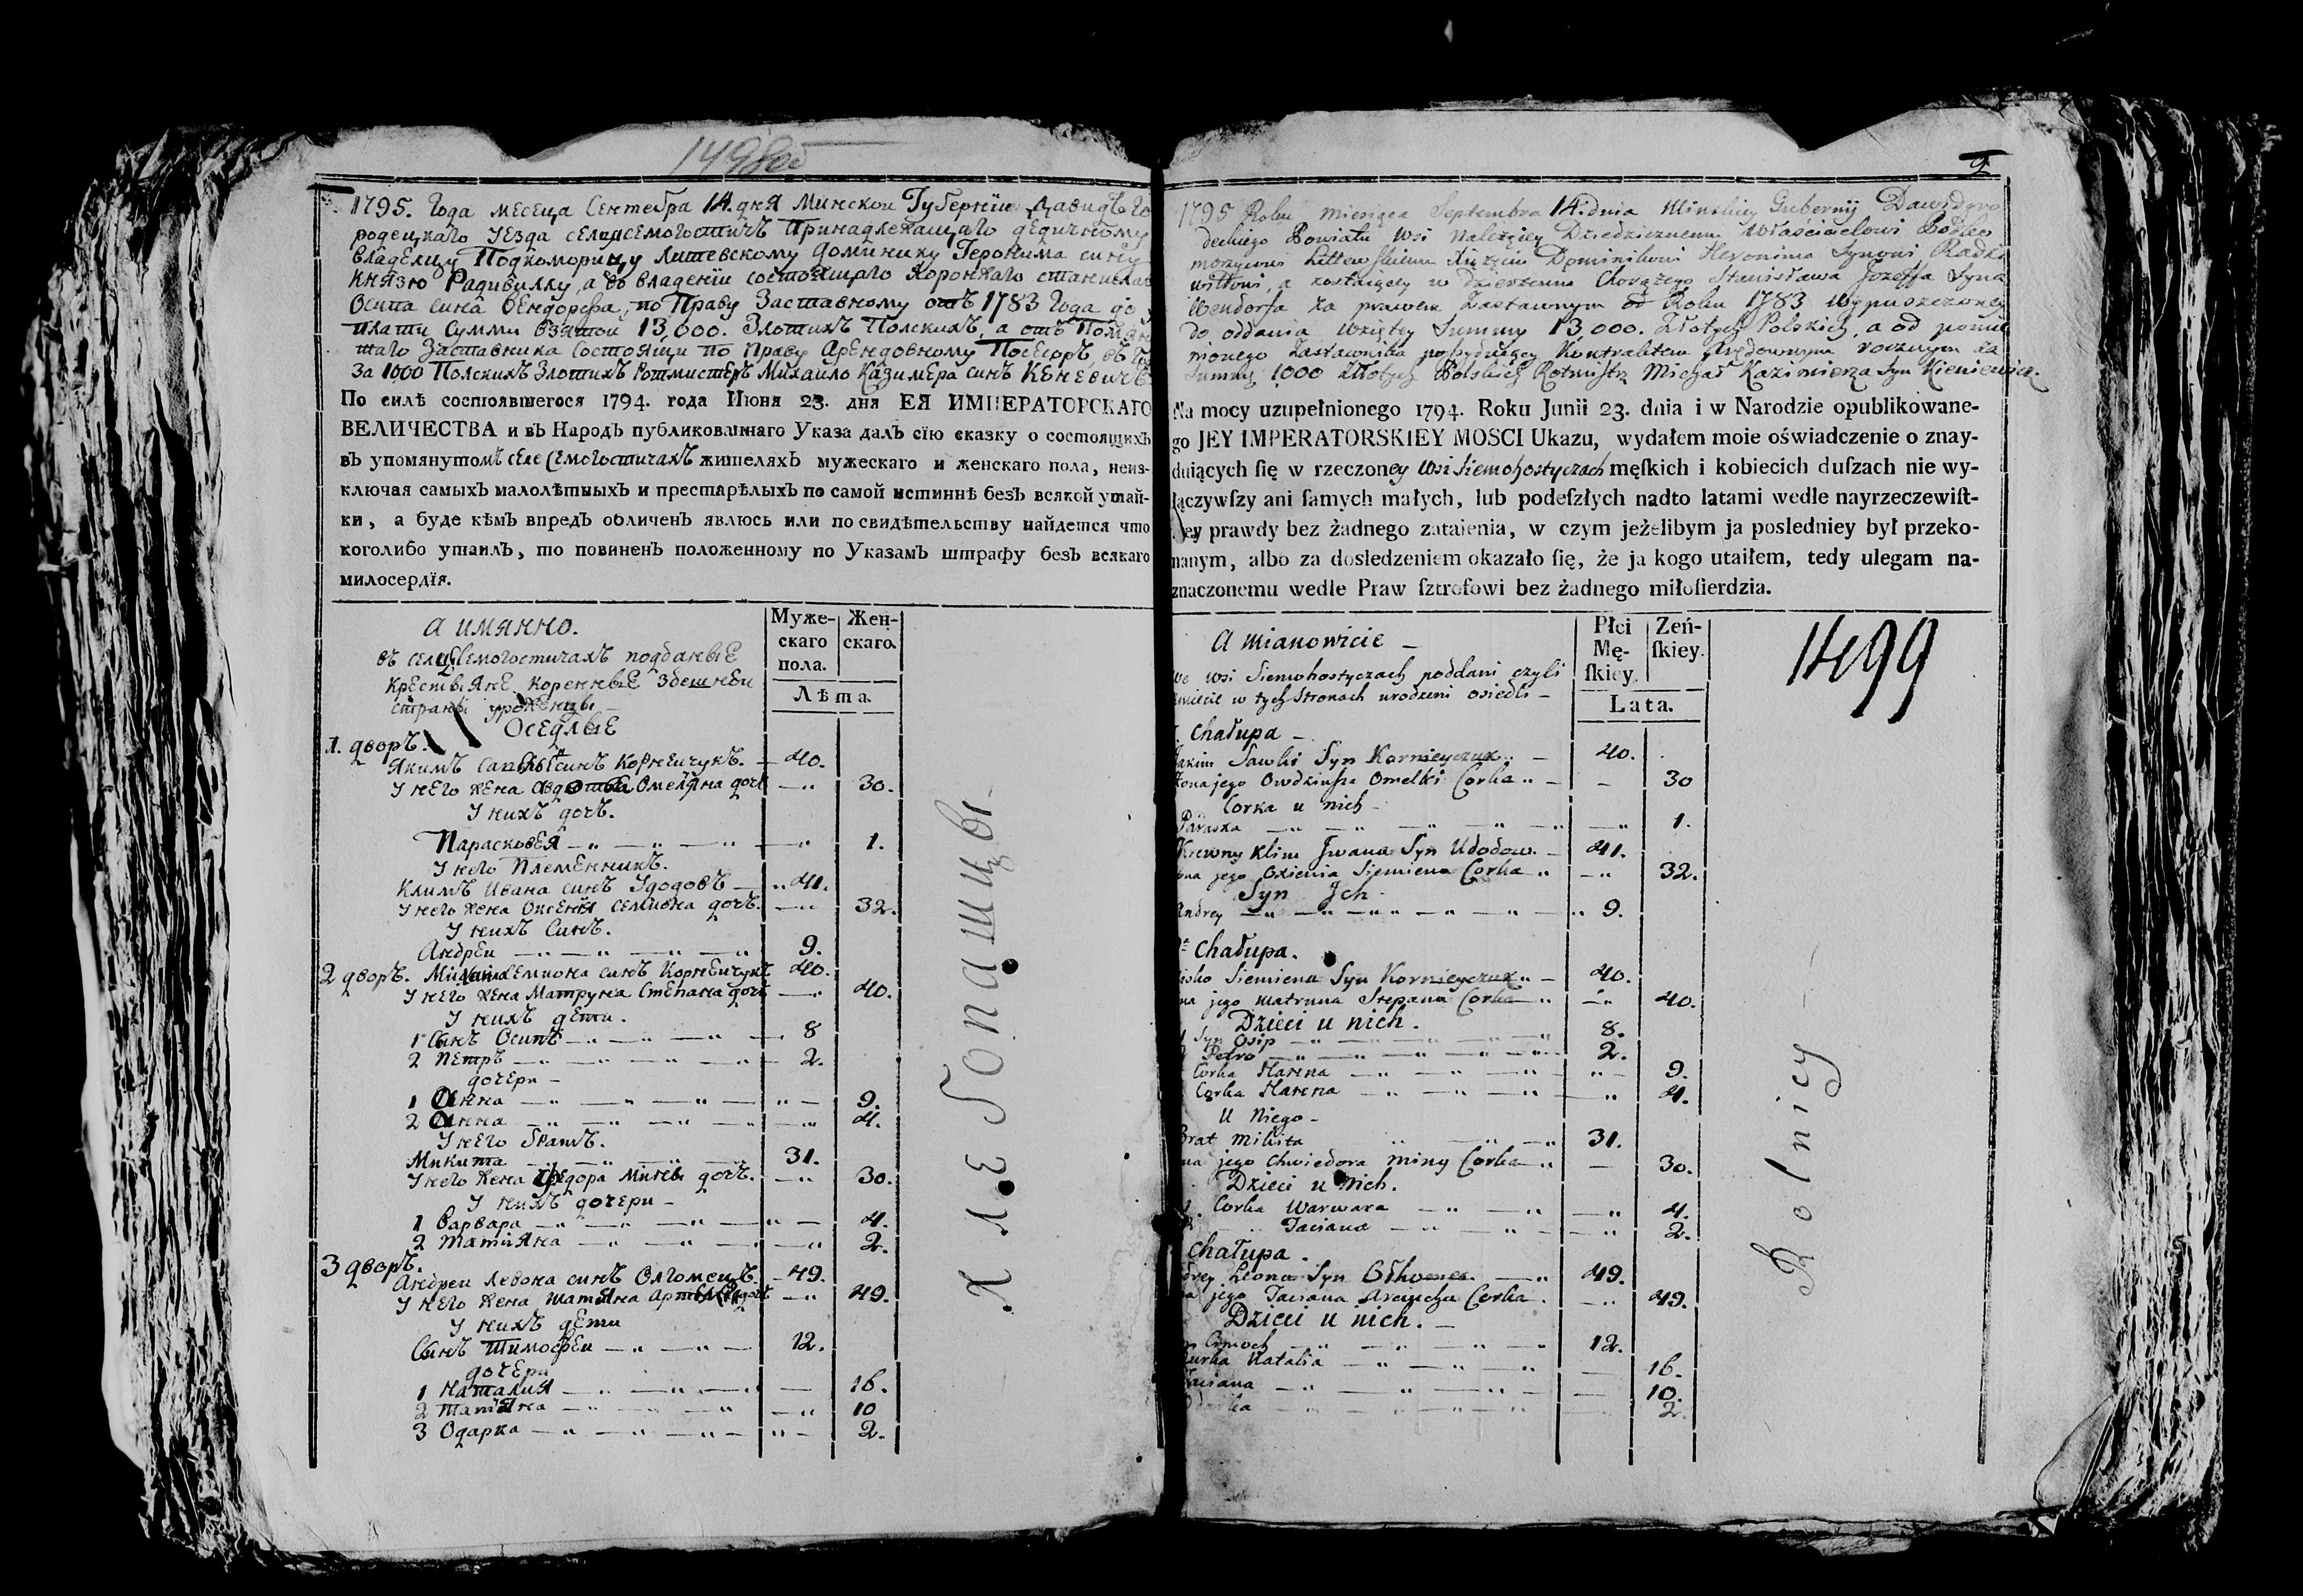 1498об
1795. Года месеца Сентебра 14. дня Минскои Губернїи Давидъ Го
родецкаго уезда селца Семогостичъ Принадлежащаго Дедичному
владелцу Подкоморицу Литевскому Доминику Геронима сину
Князю Радивиллу, а во владенїи состоящаго Хоронжаго станислав
Осипа сина Вендорфа, по Праву Заставному отъ 1783 Года до
платы Суммы взятои 13,000. Злотихъ Полскихъ, а отъ
таго Заставника Состоящи по Праву Арендовному Посесоръ
За 1000 Полскихъ Злотихъ Ротмистеръ Михаило Казимера синъ Кеневичъ
По силѣ состоявшегося 1794. года Июня 23. дня ЕЯ ИМПЕРАТОРСКАГО
ВЕЛИЧЕСТВА и въ Народъ публикованнаго Указа далъ сїю сказку о состоящихъ
въ упомянутомъ селе Семогостичахъ жителяхъ мужескаго и женскаго пола, неиз-
ключая самыхъ малолѣтныхъ и престарѣлыхъ по самой истиннѣ безъ всякой утай-
ки, а буде кѣмъ впредъ обличенъ явлюсь или по свидѣтельству найдется что
коголибо утаилъ, то повиненъ положенному по Указамъ штрафу безъ всякаго
милосердїя.
а имянно.
Муже-
скаго
пола.
Жен-
скаго.
Лѣта.
въ селце Семогостичахъ подданые
крестьяне коренные здешнеи
страны уроженцы
Оседлые
1. дворъ.
Якимъ Савки синъ Корнеичукъ. — 40.
У него жена Авдотья Омеляна доч — 30.
У нихъ дочъ.
Парасковея — 1.
У него Племенникъ.
Климъ Ивана синъ Удодовъ — 41.
У него жена Оксения Семиона дочъ. — 32.
У нихъ Синъ.
Андреи — 9.
2 дворъ. Семиона синъ Корнеичукъ 40.
У него жена Матруна Степана доч — 40.
У нихъ дети.
1 Синъ Осипъ — 8
2 Петръ — 2.
дочери —
1 Анна — 9.
2 Анна — 4.
У него братъ.
Микита 31.
У него жена Федора Мины дочъ. — 30.
У нихъ дочери —
1 Варвара — 4.
2 Татияна — 2.
3 дворъ.
Андреи Левона синъ Олгомецъ. — 49.
У него жена Татияна — 49.
У нихъ дети
Синъ Тимофеи — 12.
дочери
1 Наталия — 16.
2 Татияна — 10
3 Одарка — 2.
Хлебопашцы —
9
1795 Roku miesiąca Septembra 14. dnia Minskiey Gubernij Dawidgro
deckiego Powiatu Wsi Należącey Dziedzicznemu Własicielowi Podko
morzycowi Littewskiemu Xiążęciu Dominikowi Heronima Synowi Radzi
wiłłowi, a zostaiącey w dzierżeniu Chorążego Stanisława Jozeffa Syna
Wendorfa za prawem Zastawnym od Roku 1783 wypuszczoney
do oddania wziętey Summy 13,000. Złotych Polskich, a od pomie
nionego Zastawnika possyduiący Kontraktem Arędownym rocznym za
Summę 1000 Złłotych Polskich Rotmistrz Michał Kazimierza Syn Kieniewicz.
Na mocy uzupełnionego 1794. Roku Junii 23. dnia i w Narodzie opublikowane-
go JEY IMPERATORSKIEY MOSCI Ukazu, wydałem moie oświadczenie o znay-
duiących ſię w rzeczoney Wsi Siemohostyczach męſkich i kobiecich duſzach nie wy-
łączywſzy ani ſamych małych, lub podeſzłych nadto latami wedle nayrzeczewiſt-
ſzey prawdy bez żadnego zataienia, w czym jeżelibym ja posledniey był przeko-
nanym, albo za dosledzeniem okazało ſię, że ja kogo utaiłem, tedy ulegam na-
znaczonemu wedle Praw ſztrofowi bez żadnego miłoſierdzia.
A mianowicie —
Płci
Mę-
ſkiey.
Zeń-
ſkiey.
Lata.
1499
we wsi Siemohostyczach poddani czyli
w tych Stronach urodzeni osiedli —
Chałupa —
Jakim Sawki Syn Kornieyczuk — 40.
Zona jego Owdziusza Omelki Corka — 30
Corka u nich —
Paraska — 1.
Krewny Klim Jwana Syn Udodow. — 41.
ona jego Oxienia Siemiena Corka — 32.
Syn Jch
Andrey — 9.
Chałupa.
Siemiena Syn Korneyczuk — 40.
na jego Matruna Stepana Corka — 40.
Dzieci u nich.
Syn Osip — 8.
Petro — 2.
Corka Hanna — 9.
Corka Hanna — 4.
U Niego —
Brat Mikita 31.
na jego Chwiedora Miny Corka — 30.
Dzieci u nich.
Corka Warwara — 4.
Taciana — 2.
Chałupa.
drey Leona Syn — 49.
na jego Taciana Corka. — 49.
Dzieci u nich. —
12.
Curka Natalia — 16.
Taciana — 10.
Odarka — 2.
Rolnicy —